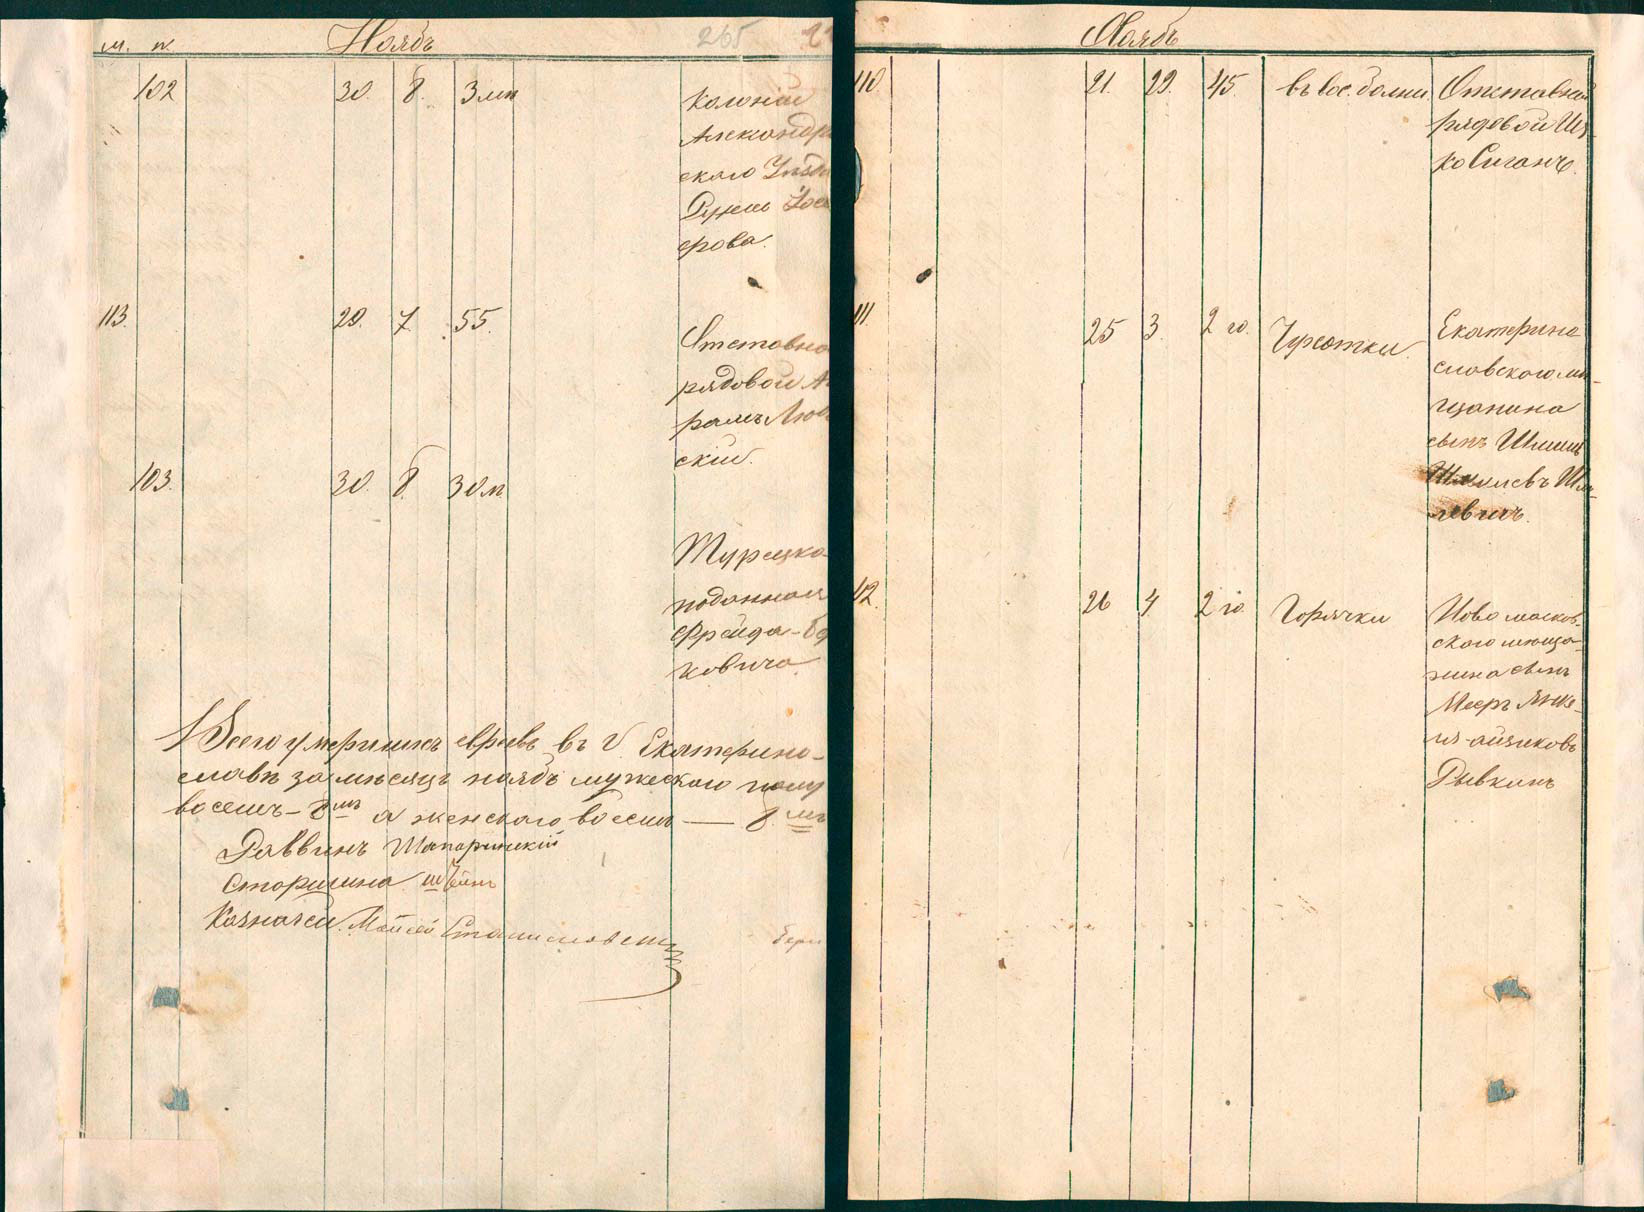 м. ж. Ноябь 265
102 30. 8. 3 мп
Колоніи
Александр
ского Уѣзда
Рухель Іос
ерова.
113. 29. 7. 55.
Отставно
рядовой А
рамъ Люб
скій.
103. 30. 8. 30 л
Турецко
поданная
Фрейда-Бе
ковича
Всего умершихъ евреевъ въ г. Екатерино-
славѣ за мѣсяцъ ноябь мужескаго полу
восемь - 8мъ а женскаго восемь — 8.мъ
Раввинъ Шапаринскій
Старшина
Казначей. Мойсей
Ноябь
110 21. 29. 45. въ вос. болни. Отставной
рядовой Иц-
ко Сиганъ.
111. 25 3. 2 го. Чухотки. Екатерино
славскаго мѣ-
щанина
сынъ Шлиома
левичъ.
112. 26 4 2 го Горячки Новомосков-
скаго мѣща-
нина сынъ
Мееръ Янке-
ль-айзиковъ
Рывкинъ